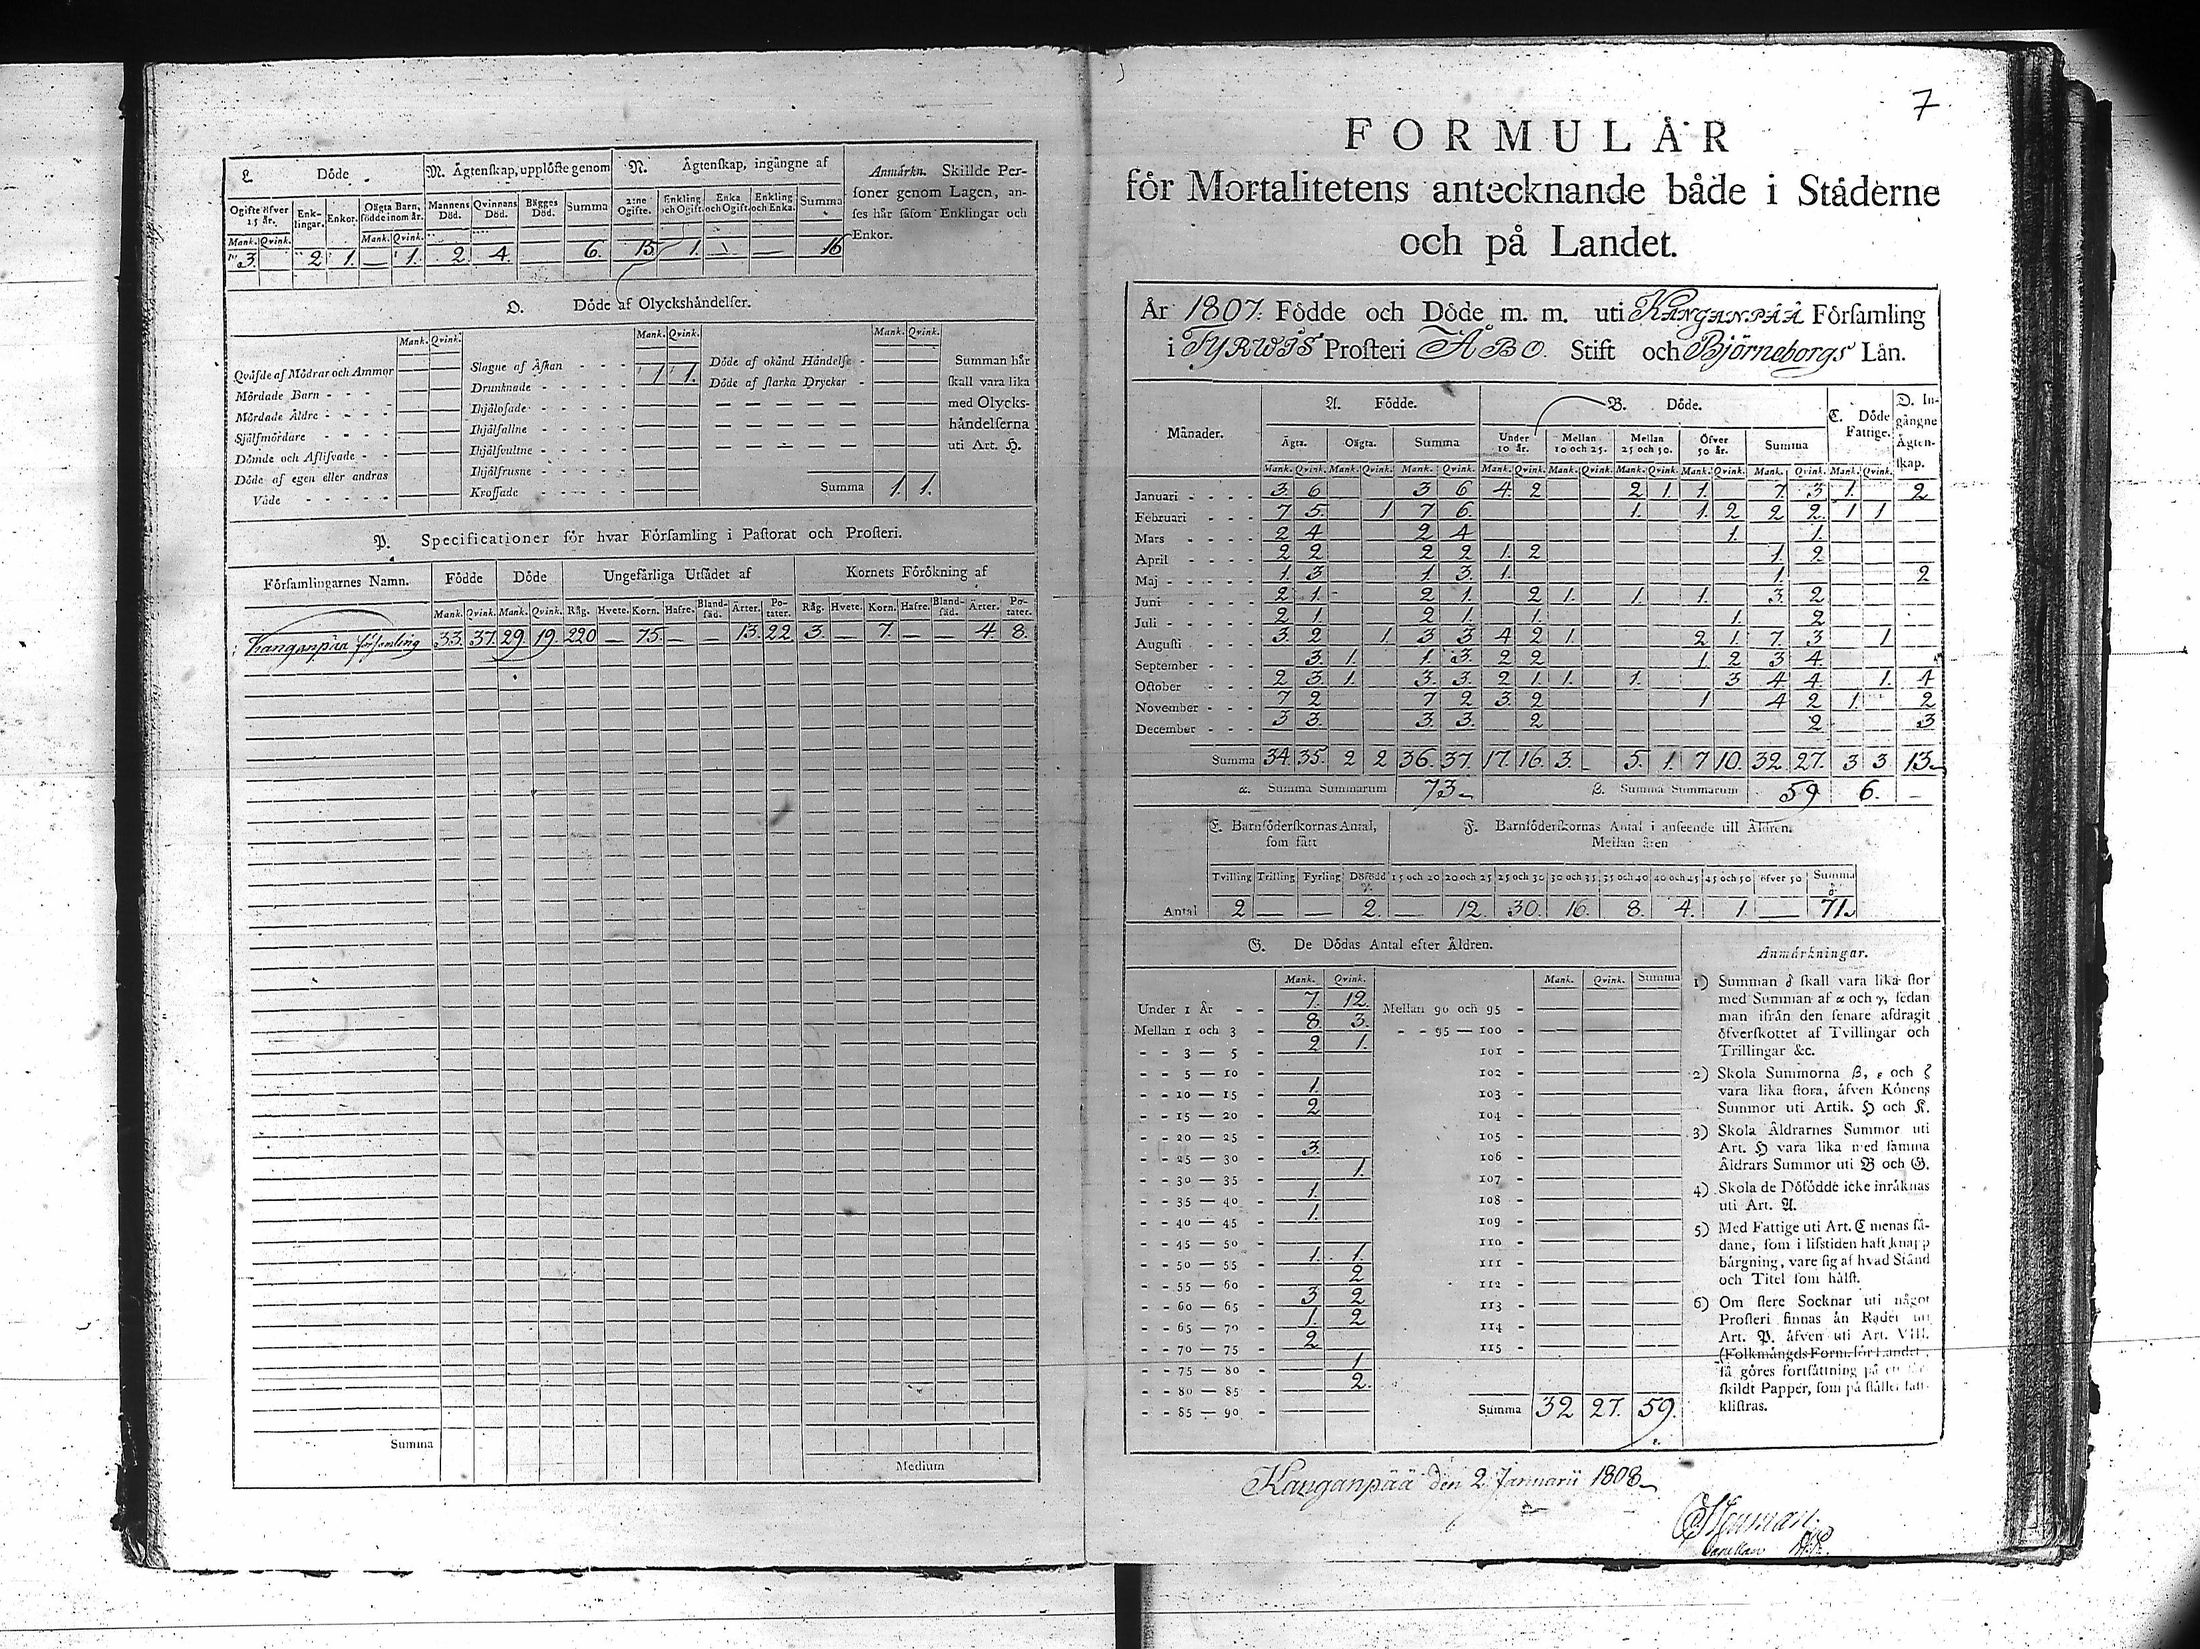 L Döde
M. Ägtenskap, upplöste genom
N. Ägtenskap, ingångne af
Anmärkn. Skillde Per-
soner genom Lagen, an-
ses här såsom Enklingar och
Enkor.
Ogifte öfver 15 år. Enk-lingar. Enkor. Oägta Barn, födde inom år. Mannens Död. Qvinnans Död. Bägges Död. Summa 2:ne Ogifte. Enkling och Ogift. Enka och Ogift. Enkling och Enka. Summa
Mank. Qvink. Mank. Qvink.
3. — 2. 1. — 1. 2. 4. — 6. 15. 1. — — 16
O. Döde af Olyckshändelser.
Mank. Qvink. Mank. Qvink. Mank. Qvink.
Qväfde af Mödrar och Ammor
Mördade Barn - - - -
Mördade Äldre - - - -
Självmördare - - - -
Dömde och Aflifvade - -
Döde af egen eller andras
Våde - - - - -
Slagne af Åskan - - - 1 1.
Drunknade - - - - -
Ihjälosade - - - - -
Ihjälfallne - - - - -
Ihjälsvultne - - - - -
Ihjälfrusne - - - - -
Krossade - - - - -
Döde af okänd Händelse -
Döde af starka Drycker -
Summa 1. 1.
Summan här
skall vara lika
med Olycks-
händelserna
uti Art. H.
P. Specificationer för hvar Församling i Pastorat och Prosteri.
Församlingarnes Namn. Födde Döde Ungefärliga Utsädet af Kornets Förökning af
Mank. Qvink. Mank. Qvink. Råg. Hvete. Korn. Hafre. Bland-säd. Ärter. Po-tater. Råg. Hvete. Korn. Hafre. Bland-säd. Ärter. Po-tater.
Kanganpää församling 33. 37. 29. 19. 220 — 75. — — 13. 22 3. — 7. — — 4. 8.
Summa
Medium
7
FORMULÄR
för Mortalitetens antecknande både i Städerne
och på Landet.
År 1807. Födde och Döde m. m. uti KANGANPÄÄ Församling
i TYRWIS Prosteri ÅBO. Stift och Björneborgs Län.
Månader. A. Födde. B. Döde. C. Döde Fattige. D. In-gångne Ägten-skap.
Ägta. Oägta. Summa Under 10 år. Mellan 10 och 25. Mellan 25 och 50. Öfver 50 år. Summa
Mank. Qvink. Mank. Qvink. Mank. Qvink. Mank. Qvink. Mank. Qvink. Mank. Qvink. Mank. Qvink. Mank. Qvink. Mank. Qvink.
Januari - - - - 3. 6 3 6 4. 2 2 1. 1. 7. 3 1. 2
Februari - - - 7 5. 1 7 6. 1. 1. 2 2 2. 1 1
Mars - - - - 2 4 2 4 1. 1.
April - - - - 2 2 2 2 1. 2 1 2.
Maj - - - - - 1. 3 1. 3. 1. 1. 2
Juni - - - - 2 1 2 1. 2 1. 1. 1. 3. 2
Juli - - - - - 2 1 2 1. 1. 1. 2
Augusti - - - 3 2 1. 3 3 4 2 1. 2 1 7 3 1
September - - - 3. 1. 1. 3. 2 2 1. 2 3 4.
October - - - 2 3 1. 3. 3. 2 1. 1. 1. 3 4 4 1. 4
November - - - 7 2 7 2 3. 2 1 4 2 1. 2
December - - - 3 3. 3. 3. 2 2 3
Summa 34. 35. 2 2 36. 37. 17. 16. 3. - 5. 1. 7 10. 32 27. 3 3. 13
α. Summa Summarum 73 β. Summa Summarum 59 6. —
E. Barnföderskornas Antal, som fått
F. Barnföderskornas Antal i anseende till Åldren.
Mellan åren
Tvilling Trilling Fyrling Dödfödd γ. 15 och 20 20 och 25 25 och 30 30 och 35 35 och 40 40 och 45 45 och 50 öfver 50 Summa δ.
Antal 2 — — 2. — 12. 30. 16. 8. 4. 1. — 71.
G. De Dödas Antal efter Åldren.
Mank. Qvink. Mank. Qvink. Summa
Under 1 År - - 7. 12. Mellan 90 och 95 -
Mellan 1 och 3 - 8 3. - - 95 — 100 -
- - 3 — 5 - 2 1. 101 -
- - 5 — 10 - 102 -
- - 10 — 15 - 1. 103 -
- - 15 — 20 - 2 104 -
- - 20 — 25 - 105 -
- - 25 — 30 - 3. 106 -
- - 30 — 35 - 1. 107 -
- - 35 — 40 - 1. 108 -
- - 40 — 45 - 1. 109 -
- - 45 — 50 - 110 -
- - 50 — 55 - 1. 1 111 -
- - 55 — 60 - 2 112 -
- - 60 — 65 - 3 2 113 -
- - 65 — 70 - 1. 2 114 -
- - 70 — 75 - 2 115 -
- - 75 — 80 - 1
- - 80 — 85 - 2.
- - 85 — 90 - Summa 32 27. 59.
Anmärkningar.
1) Summan δ skall vara lika stor
med Summan af α och γ, sedan
man ifrån den senare afdragit
öfverskottet af Tvillingar och
Trillingar &c.
2) Skola Summorna β, ε och ζ
vara lika stora, äfven Könens
Summor uti Artik. H och K.
3) Skola Åldrarnes Summor uti
Art. H vara lika med samma
Åldrars Summor uti B och G.
4) Skola de Dödfödde icke inräknas
uti Art. A.
5) Med Fattige uti Art. C menas så-
dane, som i lifstiden haft knapp
bärgning, vare sig af hvad Stånd
och Titel som hälst.
6) Om flere Socknar uti något
Prosteri finnas än Rader uti
Art. P. äfven uti Art. VIII.
(Folkmängds Form. för Landet,
så göres fortsättning på
skildt Papper, som på stället fast-
klistras.
Kanganpää den 2 Januarii 1808